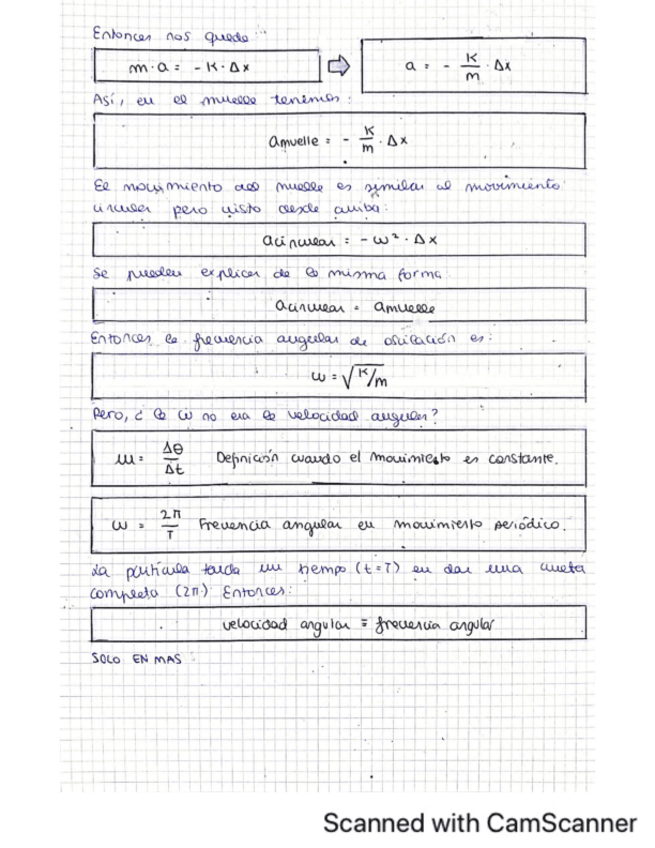 Entonces nos queda:
m·a = - K·Δx ⇨ a = - K/m · Δx
Así, en el muelle tenemos:
amuelle = - K/m · Δx
El movimiento del muelle es similar al movimiento
circular pero visto desde arriba:
acircular = - ω² · Δx
Se pueden explicar de la misma forma
acircular = amuelle
Entonces la frecuencia angular de oscilación es:
ω = √K/m
Pero, ¿ la ω no era la velocidad angular?
ω = Δθ/Δt Definición cuando el movimiento es constante.
ω = 2π/T Frecuencia angular en movimiento periódico.
La partícula tarda un tiempo (t=T) en dar una vuelta
completa (2π). Entonces:
velocidad angular = frecuencia angular
SOLO EN MAS
Scanned with CamScanner